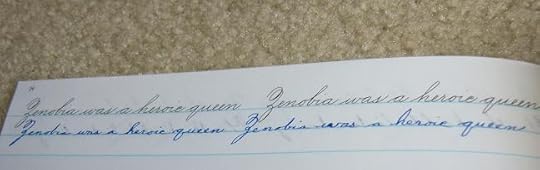 Zenobia was a heroic queen Zenobia was a heroic queen
Zenobia was a heroic queen Zenobia was a heroic queen